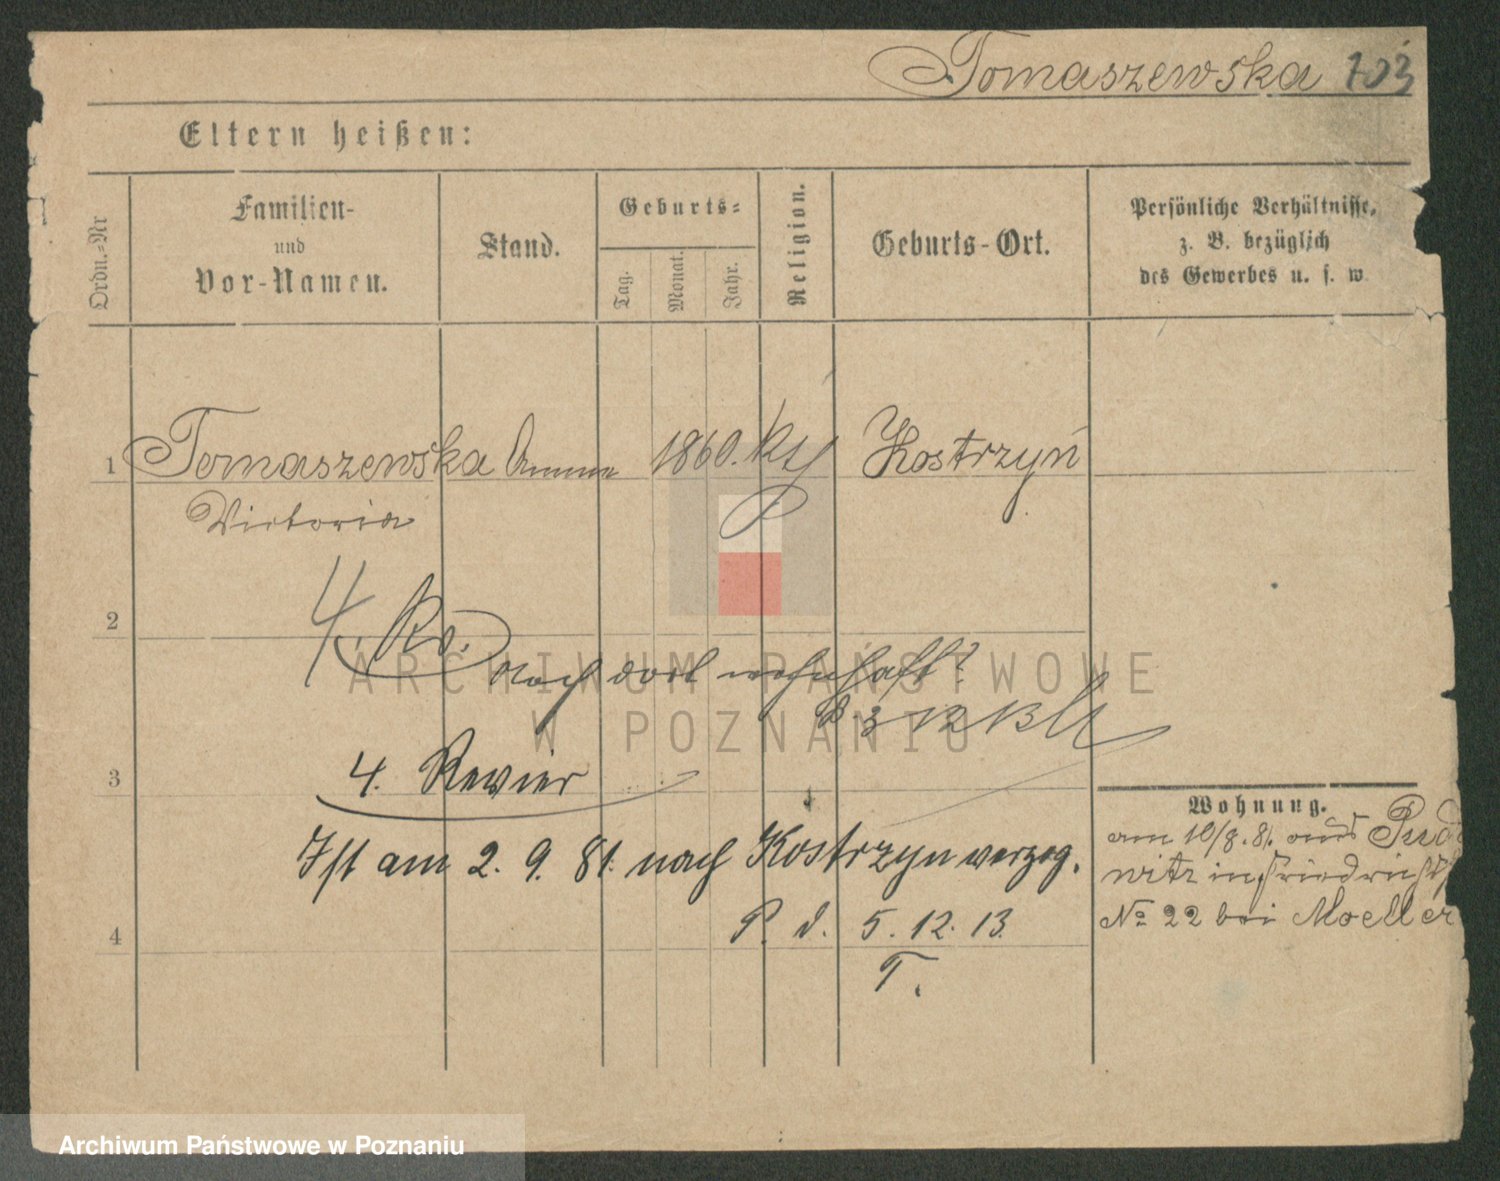 Tomaszewska 103
Eltern heißen:
Ordn.-Nr
Familien-
und
Vor-Namen.
Stand.
Geburts-
Tag.
Monat.
Jahr.
Religion.
Geburts-Ort.
Persönliche Verhältnisse,
z. B. bezüglich
des Gewerbes u. s. w.
1 Tomaszewska Amme 1860. Kostrzyń
Victoria
2
4. Rv.
noch dort wohnhaft?
P 3 12 13
3
4. Revier
Ist am 2. 9. 81. nach Kostrzyn verzog.
P. d. 5. 12. 13.
T.
4
Wohnung.
am 10/8. 81. aus Pude
witz in Friedrichst
No 22 bei Moeller
ARCHIWUM PAŃSTWOWE
W POZNANIU
Archiwum Państwowe w Poznaniu